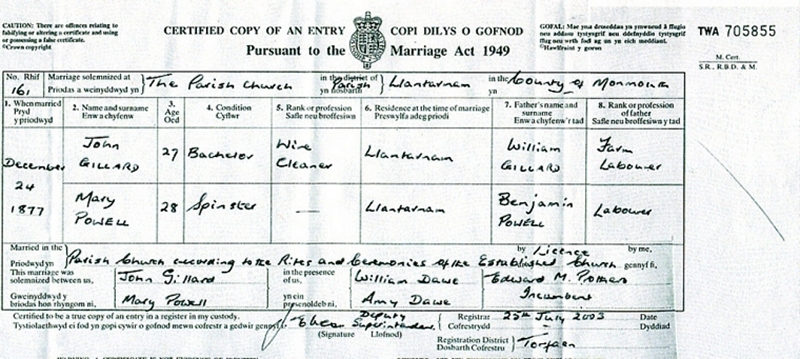 CAUTION: There are offences relating to
falsifying or altering a certificate and using
or possessing a false certificate.
©Crown copyright
CERTIFIED COPY OF AN ENTRY COPI DILYS O GOFNOD
Pursuant to the Marriage Act 1949
GOFAL: Mae yna droseddau yn ymwneud â ffugio
neu addasu tystysgrif neu ddefnyddio tystysgrif
ffug neu wrth fod ag un yn eich meddiant.
©Hawlfraint y goron
TWA 705855
M. Cert.
S.R., R.B.D. & M.
No. Rhif 161 Marriage solemnized at The Parish Church in the district of Parish Llantarnam in the County of Monmouth
Priodas a weinyddwyd yn yn nosbarth yn
1. When married
Pryd
y priodwyd
2. Name and surname
Enw a chyfenw
3.
Age
Oed
4. Condition
Cyflwr
5. Rank or profession
Safle neu broffesiwn
6. Residence at the time of marriage
Preswylfa adeg priodi
7. Father's name and
surname
Enw a chyfenw'r tad
8. Rank or profession
of father
Safle neu broffesiwn y tad
December
24
1877
John
GILLARD
27
Bachelor
Wire
Cleaner
Llantarnam
William
GILLARD
Farm
Labourer
Mary
POWELL
28
Spinster
—
Llantarnam
Benjamin
POWELL
Labourer
Married in the Parish Church according to the Rites and Ceremonies of the Established Church by Licence by me.
Priodwyd yn gennyf fi,
This marriage was
solemnized between us, John Gillard in the presence of us, William Dawe Edward M.
Gweinyddwyd y
briodas hon rhyngom ni, Mary Powell yn ein presenoldeb ni, Amy Dawe Incumbent
Certified to be a true copy of an entry in a register in my custody.
Tystiolaethwyd ei fod yn gopi cywir o gofnod mewn cofrestr a gedwir gennyf
Deputy
Superintendent
(Signature Llofnod)
Registrar
Cofrestrydd
25th July 2003 Date
Dyddiad
Registration District
Dosbarth Cofrestru
Torfaen